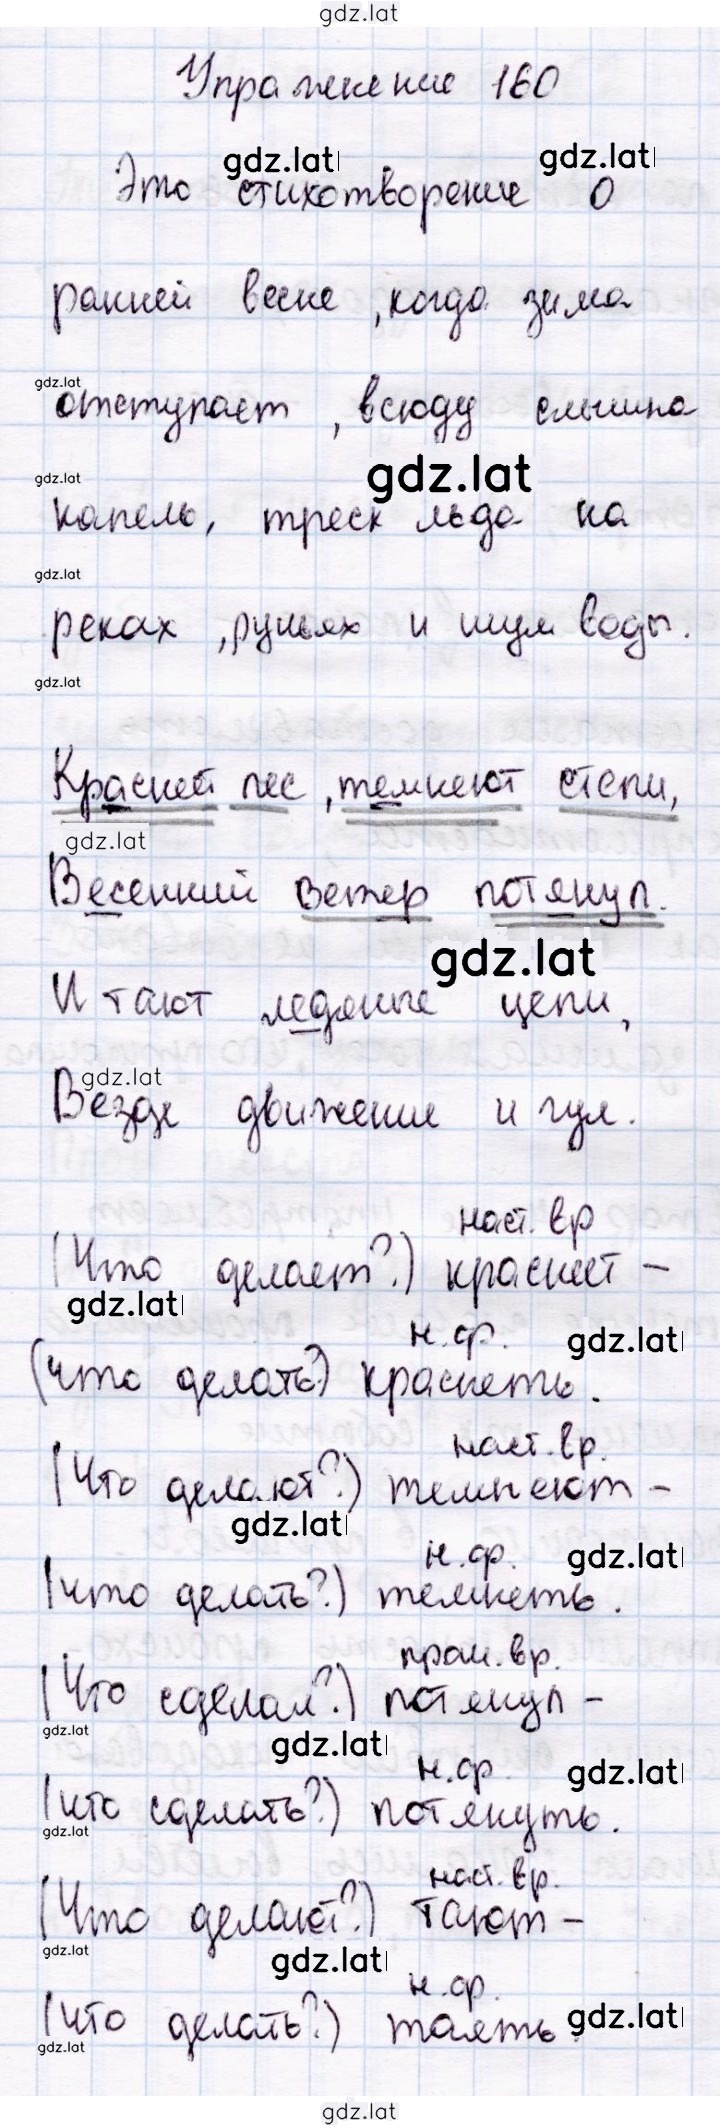 gdz.lat
Упражнение 160
gdz.lat gdz.lat
Это стихотворение о
ранней весне, когда зима
gdz.lat
отступает, всюду слышна
gdz.lat
gdz.lat
капель, треск льда на
gdz.lat
реках, ручьях и шум воды.
gdz.lat
Краснеет лес, темнеют степи,
gdz.lat
Весенний ветер потянул.
gdz.lat
И тают ледяные цепи,
gdz.lat
Везде движение и гул.
наст. вр
(Что делает?) краснеет –
gdz.lat
н.ф. gdz.lat
(что делать?) краснеть.
наст. вр.
(Что делают?) темнеют –
gdz.lat
н.ф. gdz.lat
(что делать?) темнеть.
прош. вр.
(Что сделал?) потянул –
gdz.lat gdz.lat
н.ф. gdz.lat
(что сделать?) потянуть.
gdz.lat
наст. вр.
(Что делают?) тают –
gdz.lat gdz.lat
н.ф.
(что делать?) таять. gdz.lat
gdz.lat
gdz.lat